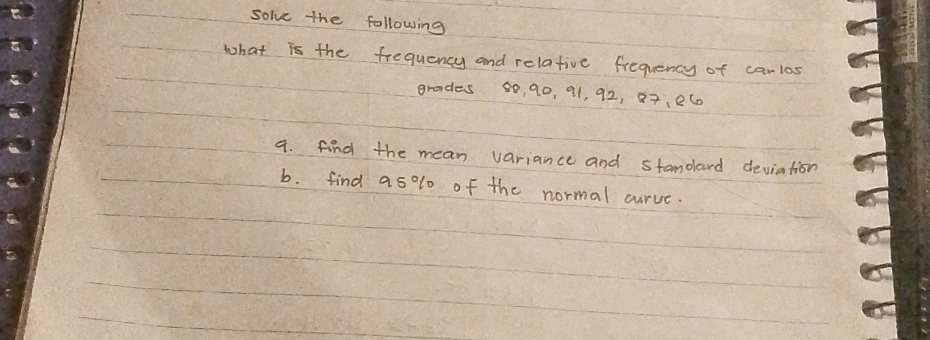 Solve the following
What is the frequency and relative frequency of carlos
grades 88, 90, 91, 92, 87, 86
a. find the mean variance and standard deviation
b. find 95% of the normal curve.